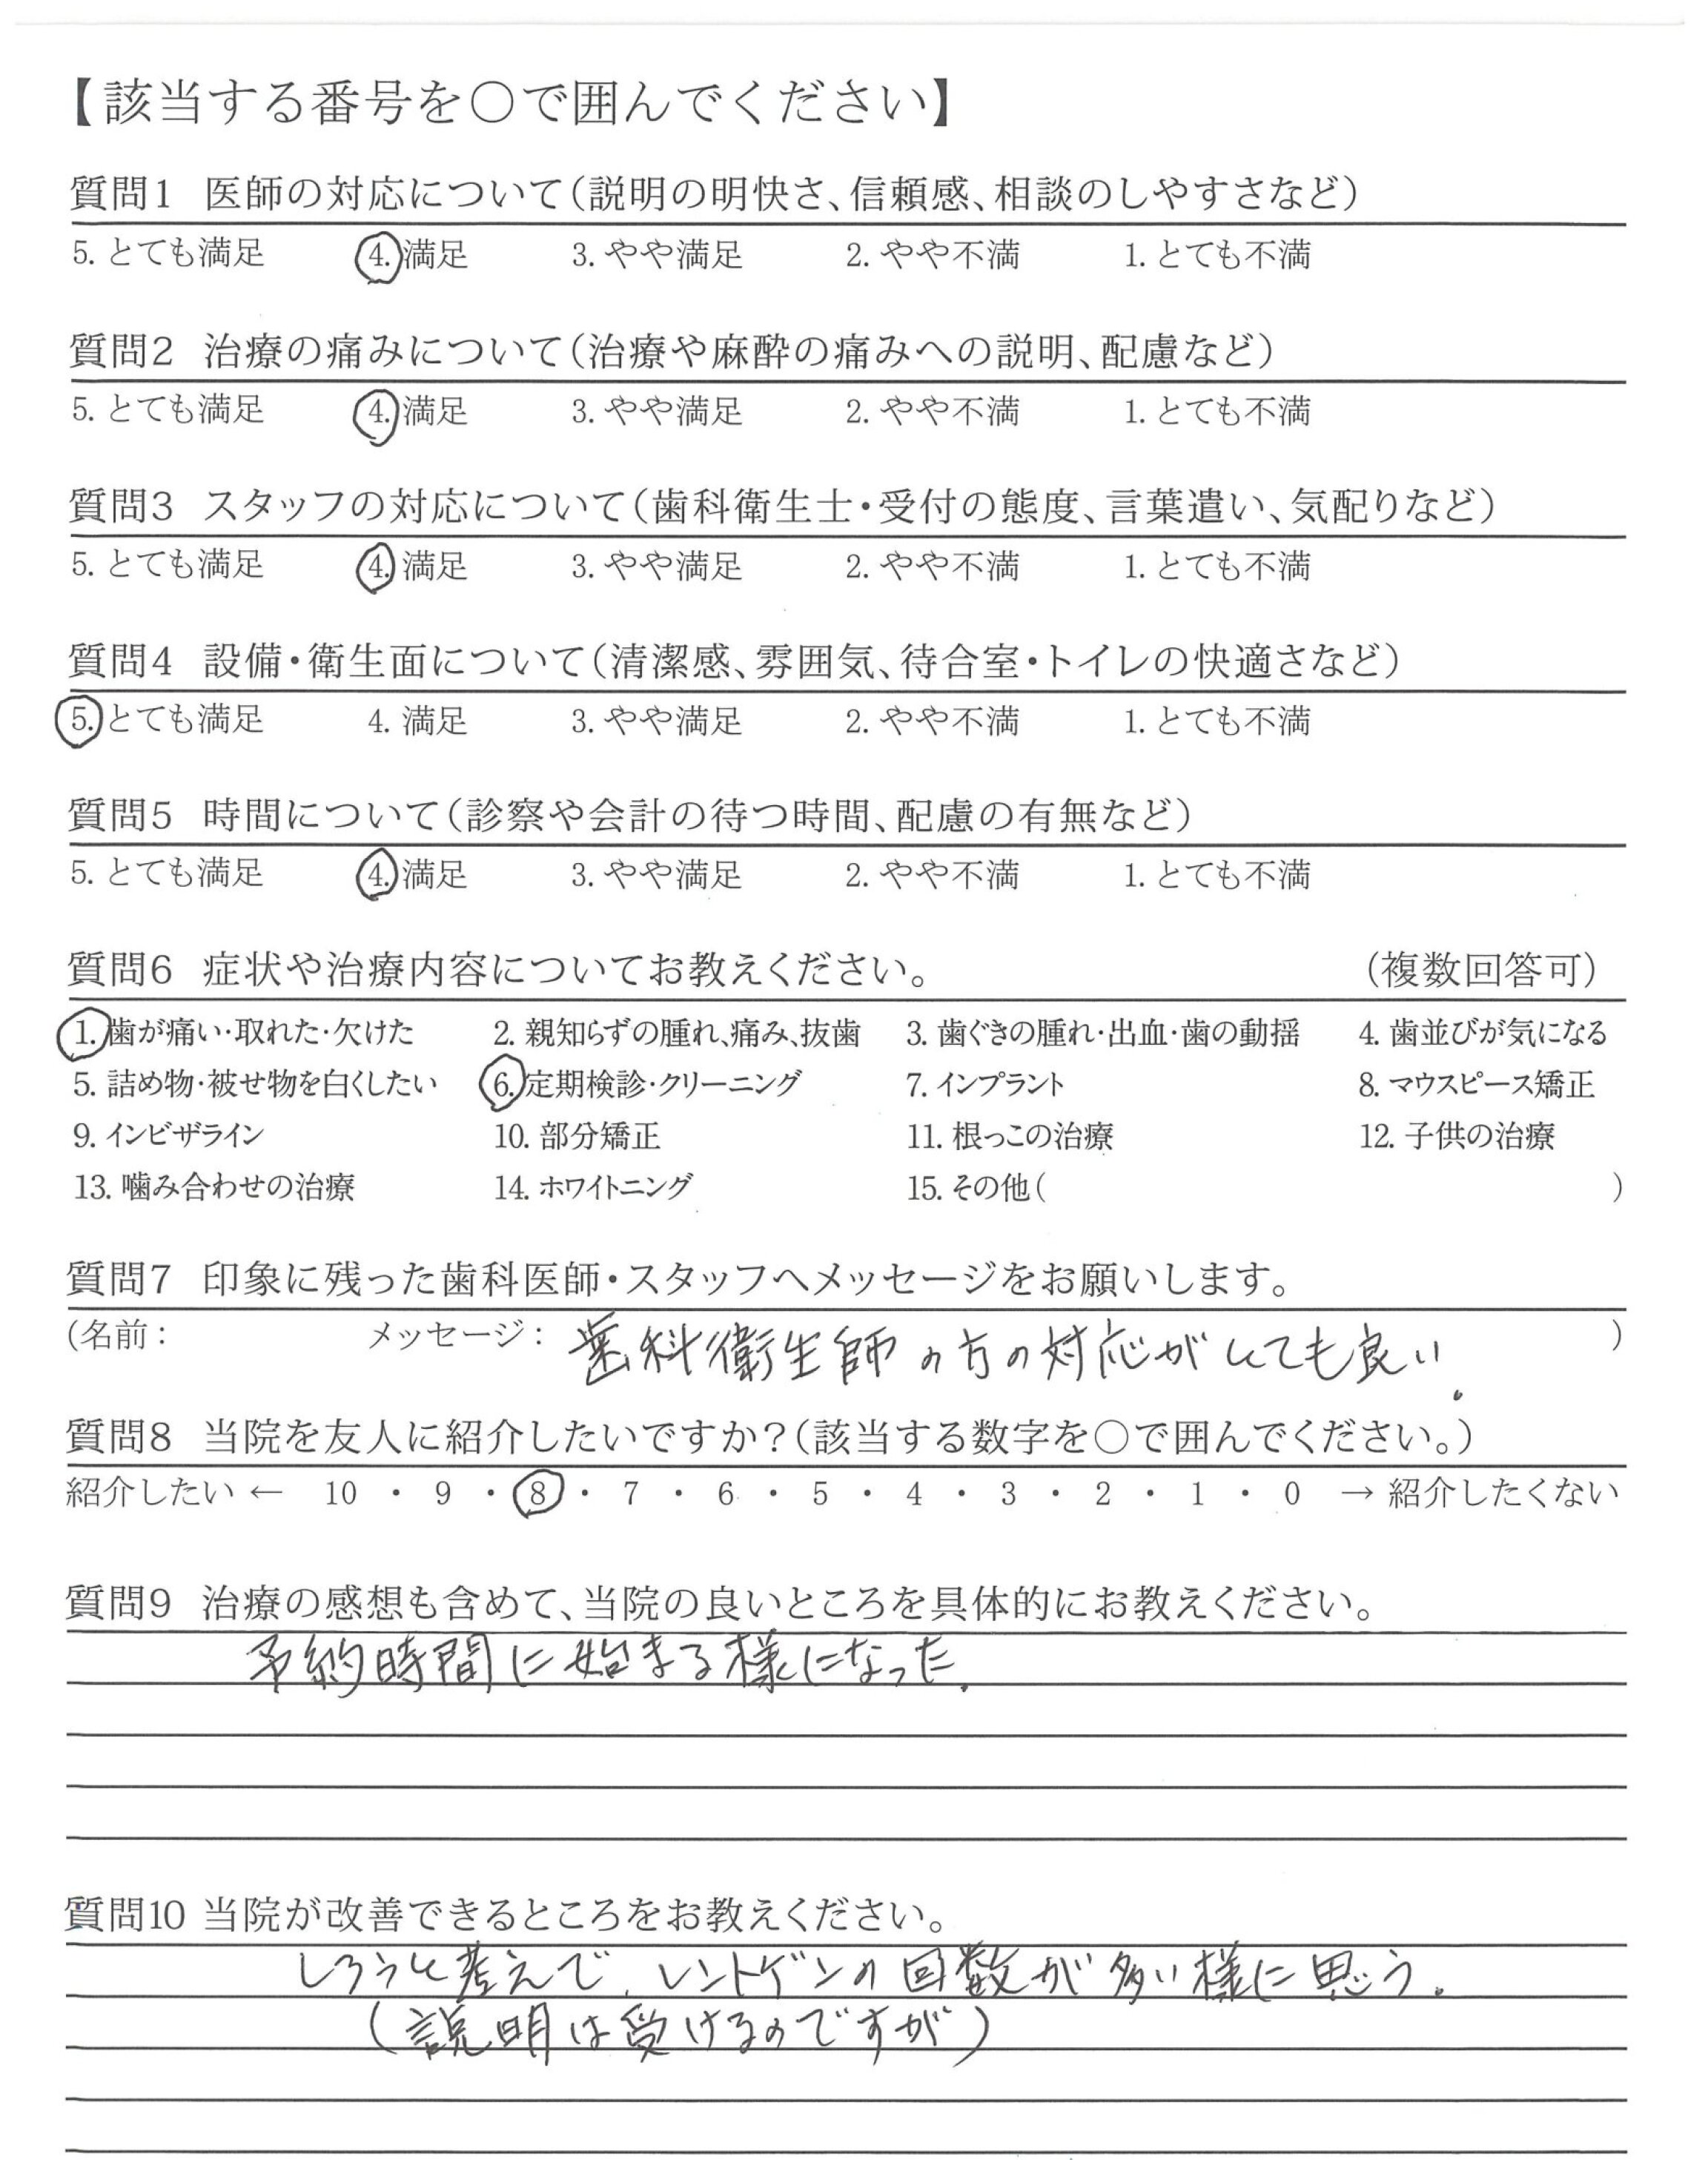 【該当する番号を○で囲んでください】
質問1 医師の対応について(説明の明快さ、信頼感、相談のしやすさなど)
5. とても満足 4. 満足 3. やや満足 2. やや不満 1. とても不満
質問2 治療の痛みについて(治療や麻酔の痛みへの説明、配慮など)
5. とても満足 4. 満足 3. やや満足 2. やや不満 1. とても不満
質問3 スタッフの対応について(歯科衛生士・受付の態度、言葉遣い、気配りなど)
5. とても満足 4. 満足 3. やや満足 2. やや不満 1. とても不満
質問4 設備・衛生面について(清潔感、雰囲気、待合室・トイレの快適さなど)
5. とても満足 4. 満足 3. やや満足 2. やや不満 1. とても不満
質問5 時間について(診察や会計の待つ時間、配慮の有無など)
5. とても満足 4. 満足 3. やや満足 2. やや不満 1. とても不満
質問6 症状や治療内容についてお教えください。 (複数回答可)
1. 歯が痛い・取れた・欠けた 2. 親知らずの腫れ、痛み、抜歯 3. 歯ぐきの腫れ・出血・歯の動揺 4. 歯並びが気になる
5. 詰め物・被せ物を白くしたい 6. 定期検診・クリーニング 7. インプラント 8. マウスピース矯正
9. インビザライン 10. 部分矯正 11. 根っこの治療 12. 子供の治療
13. 噛み合わせの治療 14. ホワイトニング 15. その他( )
質問7 印象に残った歯科医師・スタッフへメッセージをお願いします。
(名前: メッセージ: 歯科衛生師の方の対応がとても良い。 )
質問8 当院を友人に紹介したいですか?(該当する数字を○で囲んでください。)
紹介したい ← 10 ・ 9 ・ 8 ・ 7 ・ 6 ・ 5 ・ 4 ・ 3 ・ 2 ・ 1 ・ 0 → 紹介したくない
質問9 治療の感想も含めて、当院の良いところを具体的にお教えください。
予約時間に始まる様になった。
質問10 当院が改善できるところをお教えください。
しろうと考えで、レントゲンの回数が多い様に思う。
(説明は受けるのですが)